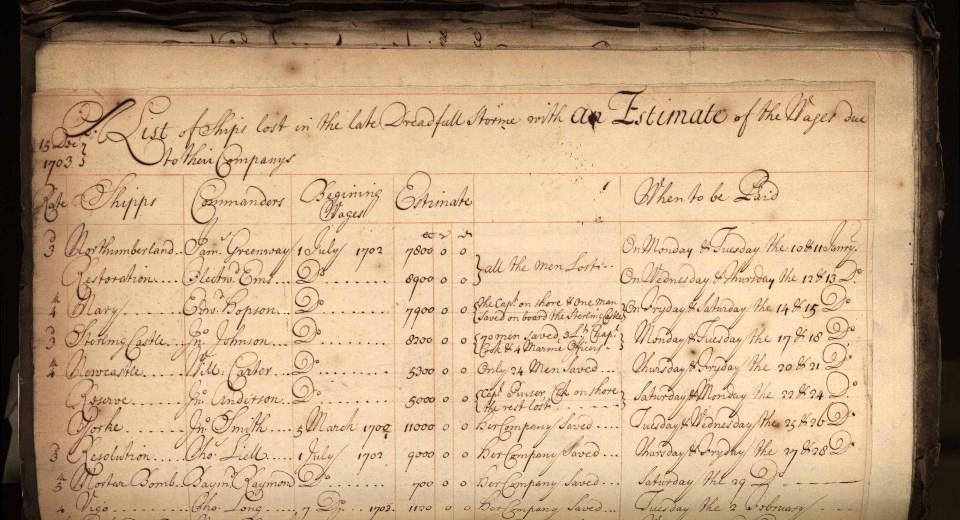 15 Decr 1703 } A List of Ships lost in the late Dreadfull Storme with an Estimate of the Wages due
to their Companys
Rate Shipps Commanders Begining Wages Estimate When to be Paid
3 Northumberland.. Jam. Greenway 1 July 1702 7800 0 0 On Monday & Tuesday the 10 & 11 Janry.
Restoration.... Ems... Do...... 8900 0 0 } all the Men Lost... On Wednesday & Thursday the 12 & 13 Do.
4 Mary...... Edwd. Hopson.. Do...... 7900 0 0 {the Capt. on shore & One man Saved on board the Sterling Castle} On Fryday & Saturday the 14 & 15 Do
3 Sterling Castle.. Jno. Johnson... Do...... 8200 0 0 {70 men saved, 3d Lt. Chapl. Cook & 4 Marine Officers} Monday & Tuesday the 17 & 18 Do
4 Newcastle... Will. Carter.. Do...... 5300 0 0 Only 24 Men Saved.... Thursday & Fryday the 20 & 21 Do
Reserve.... Jno. Anderson.. Do...... 5000 0 0 {Capt. Purser, on shore the rest lost......} Saturday & Monday the 22 & 24 Do.
Yorke...... Jno. Smith... 5 March 1702 11000 0 0 Her Company Saved.... Tuesday & Wednesday the 25 & 26 Do
3 Resolution... Tho. Liell... 1 July 1702 9000 0 0 Her Company Saved... Thursday & Fryday the 27 & 28 Do
5 Mortar Bomb.. Baym. Raymond Do...... 700 0 0 Her Company Saved... Saturday the 29 Do
4 Vigo...... Tho. Long.... 7 Do... 1703. 1120 0 0 Her Company Saved... Tuesday the 2 February